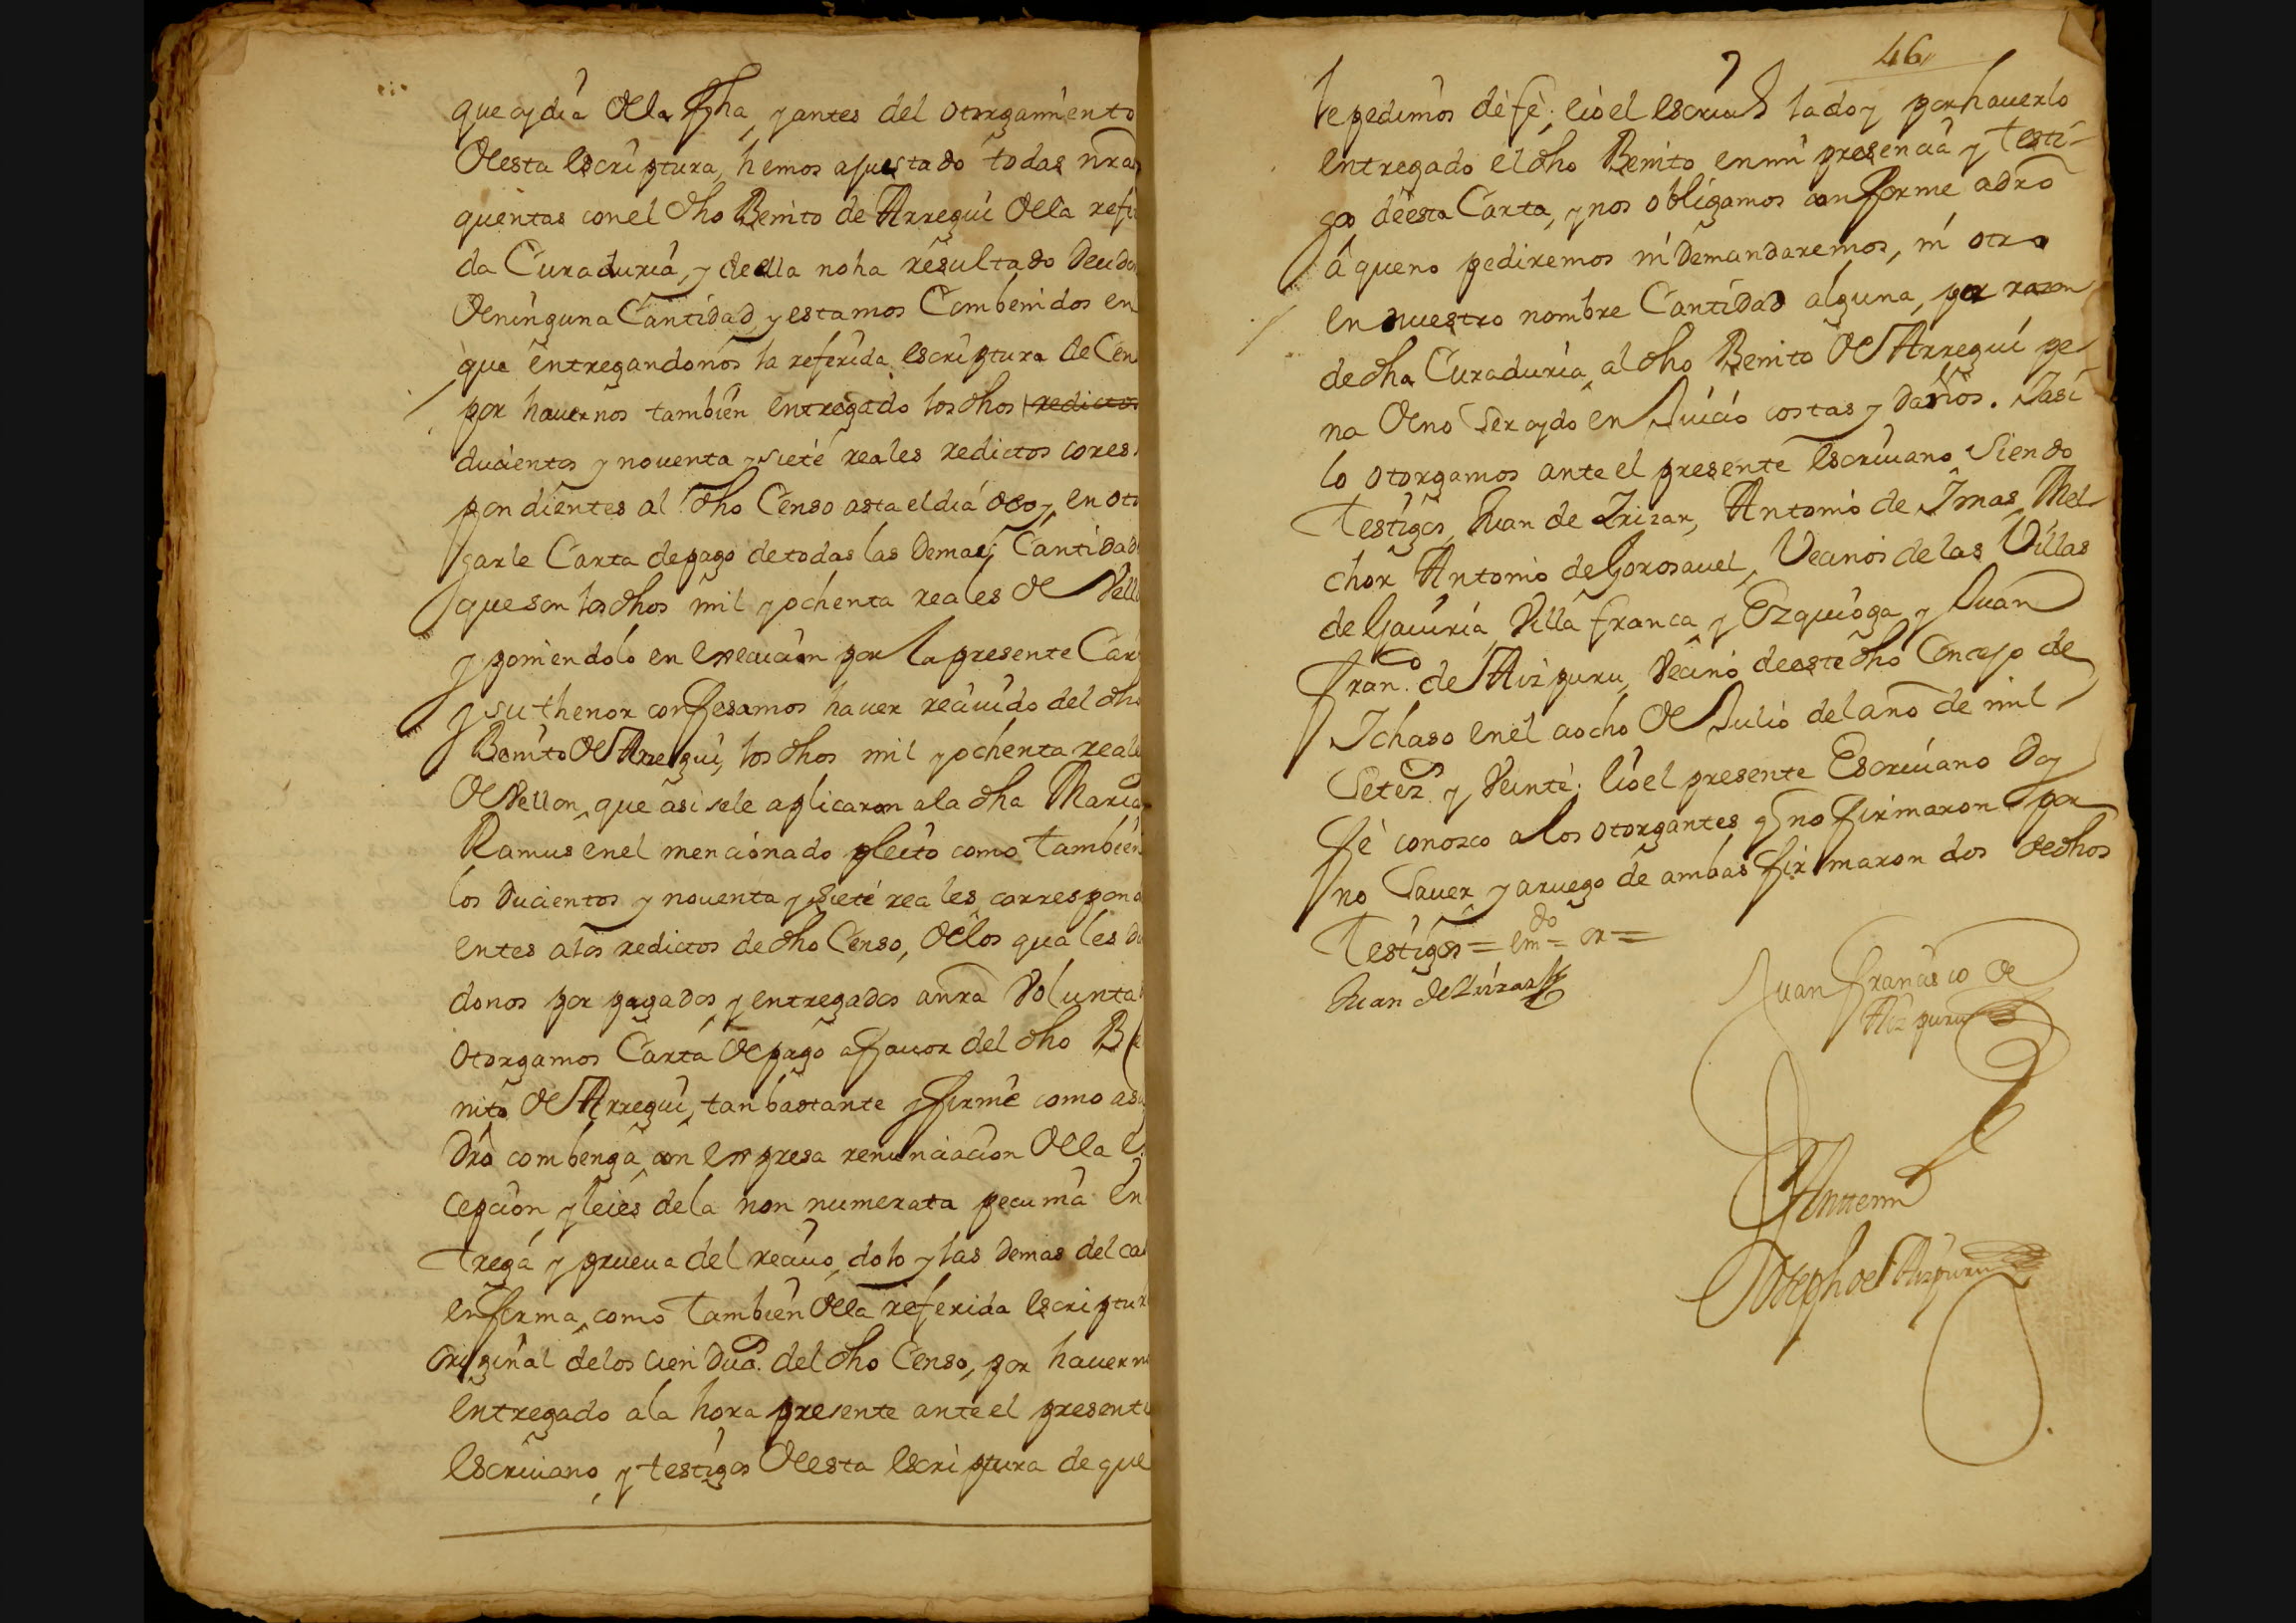 que oy dia de la fha, y antes del otorgamiento
de esta escriptura, hemos ajustado todas nras
quentas con el dho Benito de Arregui de la refe
da Curaduria, y de ella no ha resultado deudor
de ninguna Cantidad, y estamos Combenidos en
que entregandonos la referida escriptura de Cen
por havernos tambien entregado los dhos redictos
ducientos y noventa y siete reales redictos cores
pondientes al dho Censo asta el dia de oy, en oto
garle Carta de pago de todas las demas Cantidad
que son los dhos mil y ochenta reales de Vell
y poniendolo en execucion por la presente Car
y su thenor confesamos haver recivido del dho
Benito de Arregui, los dhos mil y ochenta reale
de Vellon, que asi se le aplicaron a la dha Maria
Ramus en el mencionado pleito como tambien
los ducientos y noventa y siete reales correspond
entes a los redictos de dho Censo, de los quales da
donos por pagados y entregados a nra Volunta
otorgamos Carta de pago a favor del dho Be
nito de Arregui, tan bastante y firme como a su
dro combenga con expresa renunciacion de la e
cepcion y leies de la non numerata pecunia en
trega y prueva del recivo, dolo y las demas del ca
en forma, como tambien de la referida escriptur
original de los cien duc.s del dho Censo, por haver n
entregado a la hora presente ante el present
escrivano, y testigos de esta escriptura de que
46
le pedimos de fè; e io el escriv.o la doy por haverlo
entregado el dho Benito en mi presencia y testi-
gos de esta Carta, y nos obligamos conforme a dro
à que no pediremos ni demandaremos, ni otro
en nuestro nombre Cantidad alguna, por razon
de dha Curaduria al dho Benito de Arregui pe
na de no ser oydo en Juicio costas y daños. Y asi
lo otorgamos ante el presente escrivano siendo
testigos Juan de Irizar, Antonio de Imas, Mel
chor Antonio de Gorosavel, Vecinos de las Villas
de Gaviria Villa franca y Ezquioga y Juan
Fran.co de Aizpuru, Vecino de este dho Concejo de
Ichaso en el a ocho de Julio del año de mil
setez.s y Veinte; e io el presente Escrivano doy
fè conozco a los otorgantes q no firmaron por
no saver, y a ruego de ambas firmaron dos de dhos
testigos = em.do = or =
Juan de Yrizar
Juan Francisco de
Aizpuru
Ante mi
Joseph de Aizpuru